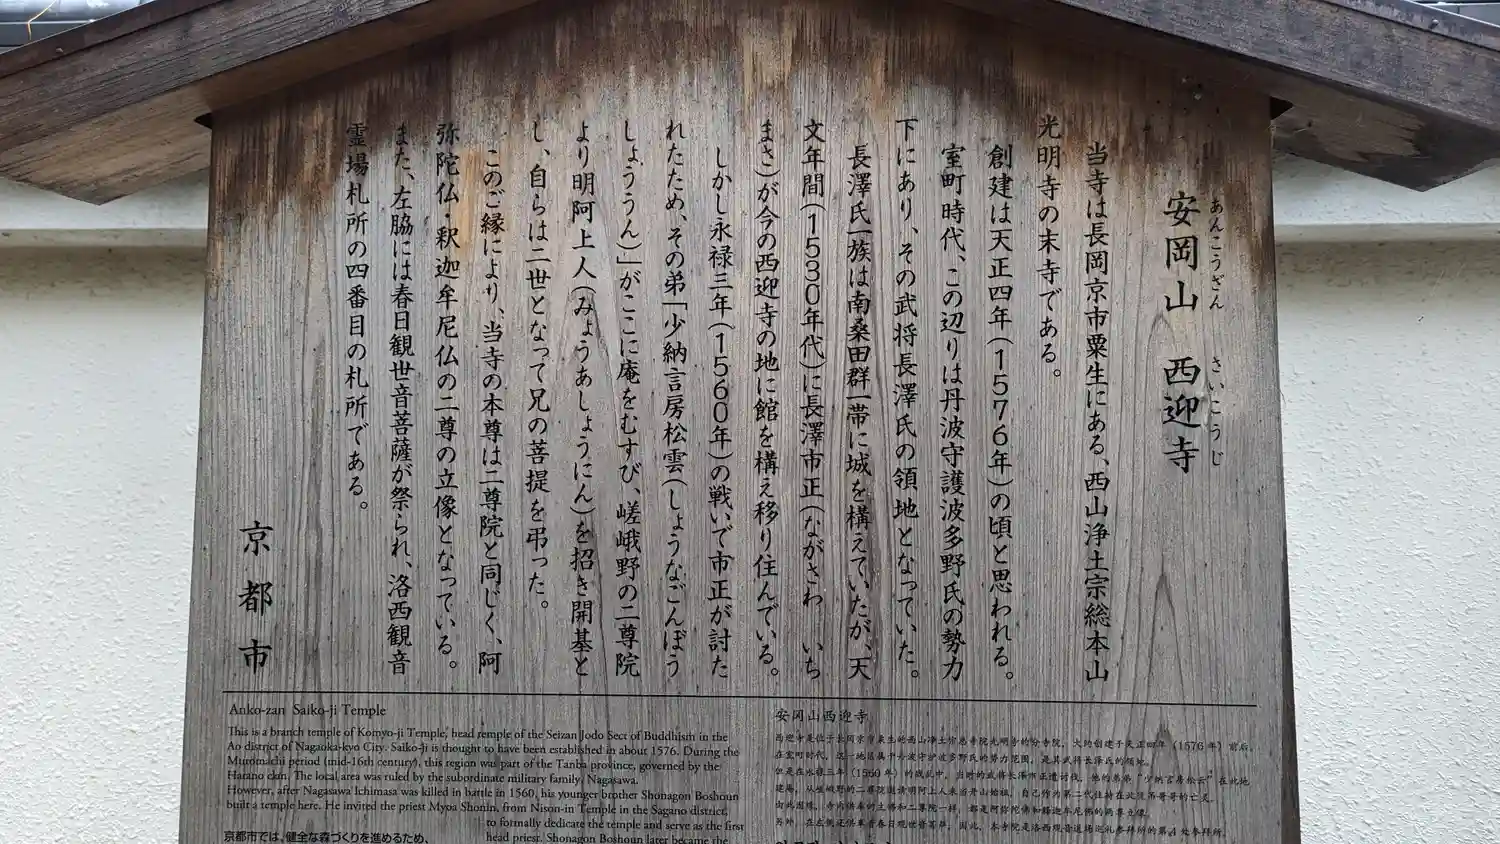 安岡山 西迎寺
あんこうざん さいこうじ
当寺は長岡京市粟生にある、西山浄土宗総本山
光明寺の末寺である。
創建は天正四年（1576年）の頃と思われる。
室町時代、この辺りは丹波守護波多野氏の勢力
下にあり、その武将長澤氏の領地となっていた。
長澤氏一族は南桑田群一帯に城を構えていたが、天
文年間（1530年代）に長澤市正（ながさわ いち
まさ）が今の西迎寺の地に館を構え移り住んでいる。
しかし永禄三年（1560年）の戦いで市正が討た
れたため、その弟「少納言房松雲（しょうなごんぼう
しょううん）」がここに庵をむすび、嵯峨野の二尊院
より明阿上人（みょうあしょうにん）を招き開基と
し、自らは二世となって兄の菩提を弔った。
このご縁により、当寺の本尊は二尊院と同じく、阿
弥陀仏・釈迦牟尼仏の二尊の立像となっている。
また、左脇には春日観世音菩薩が祭られ、洛西観音
霊場札所の四番目の札所である。
京都市
Anko-zan Saiko-ji Temple
This is a branch temple of Komyo-ji Temple, head temple of the Seizan Jodo Sect of Buddhism in the
Ao district of Nagaoka-kyo City. Saiko-ji is thought to have been established in about 1576. During the
Muromachi period (mid-16th century), this region was part of the Tanba province, governed by the
Harano clan. The local area was ruled by the subordinate military family, Nagasawa.
However, after Nagasawa Ichimasa was killed in battle in 1560, his younger brother Shonagon Boshoun
built a temple here. He invited the priest Myoa Shonin, from Nison-in Temple in the Sagano district,
to formally dedicate the temple and serve as the first
head priest. Shonagon Boshoun later became the
京都市では、健全な森づくりを進めるため、
安冈山西迎寺